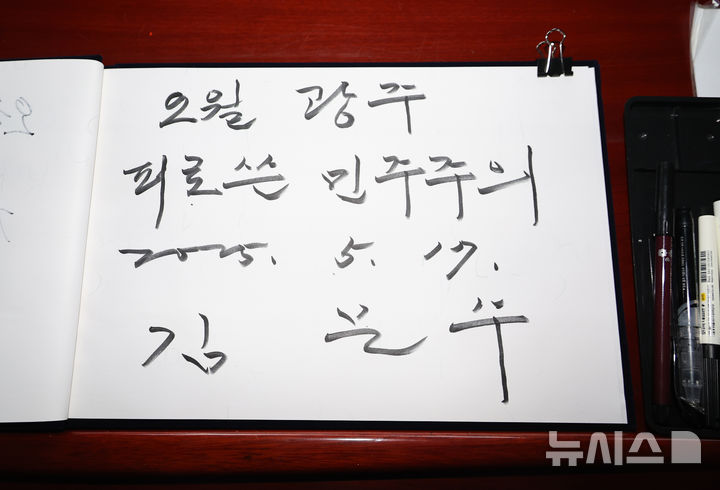 오월 광주
피로쓴 민주주의
2025. 5. 17.
김 문수
뉴시스